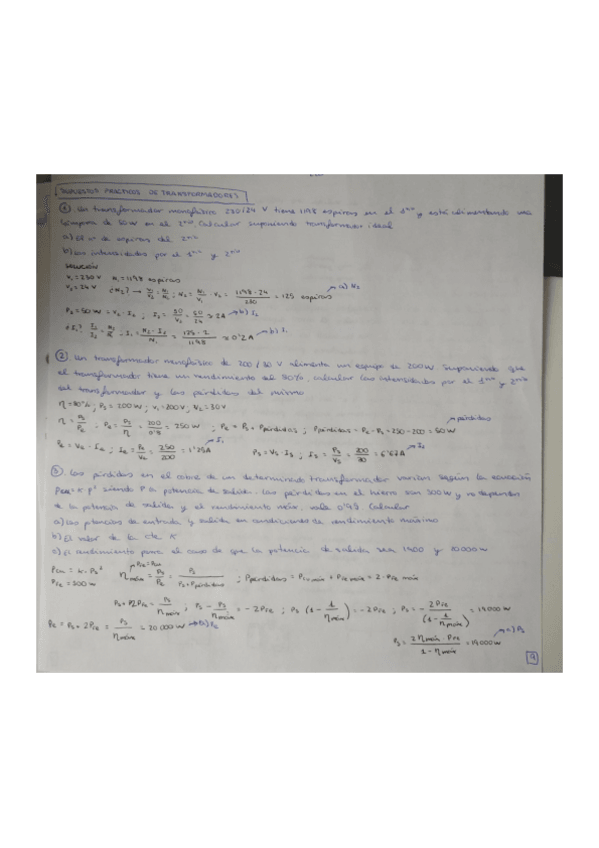 SUPUESTOS PRÁCTICOS DE TRANSFORMADORES
① Un transformador monofásico 230/24 V tiene 1198 espiras en el 1ario y está alimentando una
lámpara de 50W en el 2ario. Calcular suponiendo transformador ideal
a) El nº de espiras del 2ario
b) Las intensidades por el 1ario y 2ario
SOLUCIÓN
V₁ = 230 V N₁ = 1198 espiras
V₂ = 24 V ¿N₂? → V₁/V₂ = N₁/N₂ ; N₂ = N₁/V₁ · V₂ = 1198·24/230 = 125 espiras → a) N₂
P₂ = 50W = V₂·I₂ ; I₂ = 50/V₂ = 50/24 ≈ 2A → b) I₂
¿I₁? I₁/I₂ = N₂/N₁ - I₁ = N₂·I₂/N₁ = 125·2/1198 ≈ 0'2A → b) I₁
② Un transformador monofásico de 200/30 V alimenta un equipo de 200W. Suponiendo que
el transformador tiene un rendimiento del 80%, calcular las intensidades por el 1ario y 2ario
del transformador y las pérdidas del mismo
η = 80% ; Ps = 200W ; V₁ = 200V ; V₂ = 30V
η = Ps/Pe ; Pe = Ps/η = 200/0'8 = 250 W ; Pe = Ps + Ppérdidas ; Ppérdidas = Pe - Ps = 250 - 200 = 50W → pérdidas
Pe = Ve·Ie ; Ie = Pe/Ve = 250/200 = 1'25A → I₁ Ps = Vs·Is ; Is = Ps/Vs = 200/30 = 6'67A → I₂
③ Las pérdidas en el cobre de un determinado transformador varían según la ecuación
Pcu = K·P² siendo P la potencia de salida. Las pérdidas en el hierro son 500W y no dependen
de la potencia de salida y el rendimiento máx. vale 0'95. Calcular
a) Las potencias de entrada y salida en condiciones de rendimiento máximo
b) El valor de la cte K
c) El rendimiento para el caso de que la potencia de salida sea 1900 y 30000W
Pcu = K·Ps² PFe = Pcu
PFe = 500 W ηmáx = Ps/Pe = Ps/(Ps + Ppérdidas) ; Ppérdidas = PFe máx = 2·PFe máx
Ps + 2PFe = Ps/ηmáx ; Ps - Ps/ηmáx = -2PFe ; Ps (1 - 1/ηmáx) = -2PFe ; Ps = - 2PFe/(1 - 1/ηmáx) = 19000W
Pe = Ps + 2PFe = Ps/ηmáx = 20 000W → a) Pe
Ps = 2ηmáx·PFe/(1 - ηmáx) = 19000W → a) Ps
9